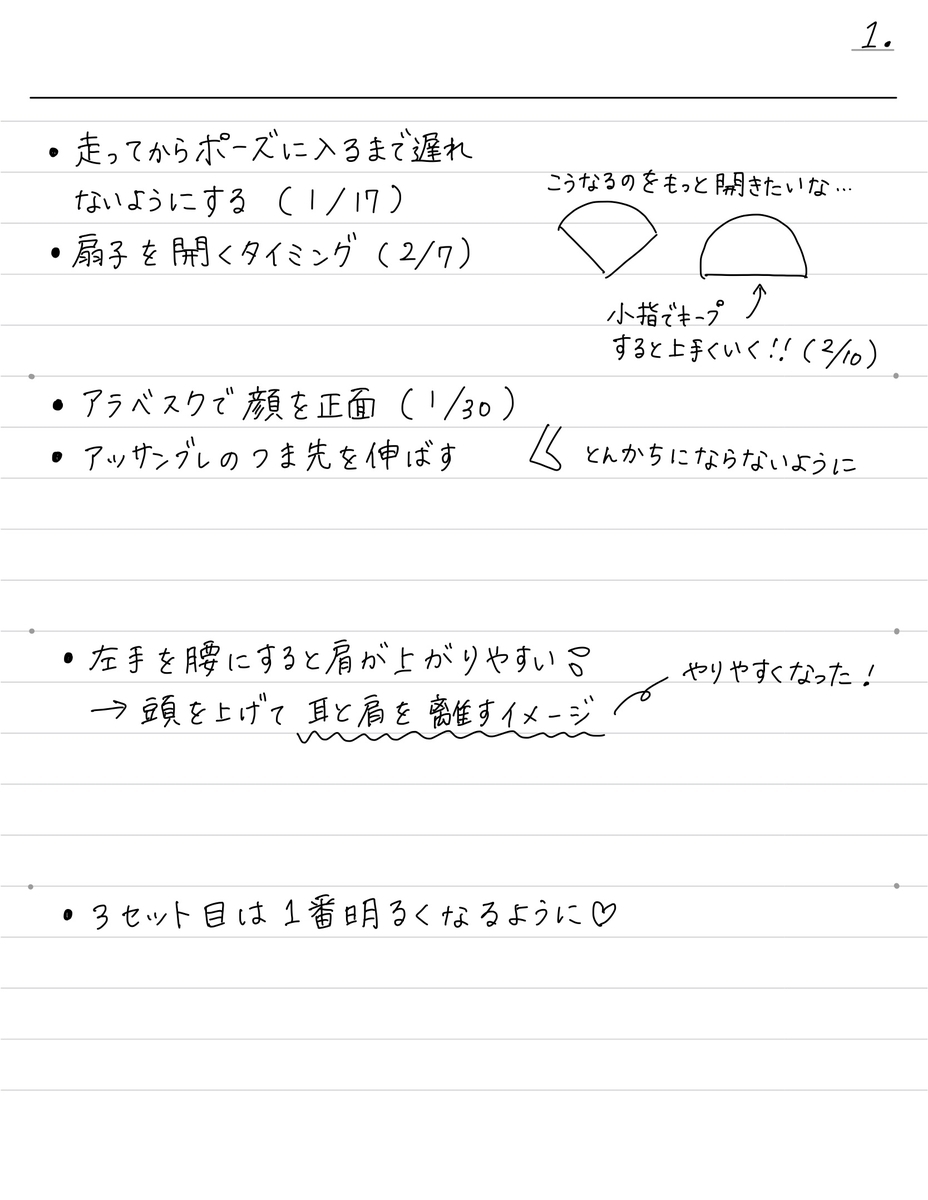 1.
・走ってからポーズに入るまで遅れ
ないようにする (1/17)
・扇子を開くタイミング (2/7)
こうなるのをもっと開きたいな…
小指でキープ
すると上手くいく!! (2/10)
・アラベスクで顔を正面 (1/30)
・アッサンブレのつま先を伸ばす
とんかちにならないように
・左手を腰にすると肩が上がりやすい
→ 頭を上げて耳と肩を離すイメージ
やりやすくなった!
・3セット目は1番明るくなるように♡